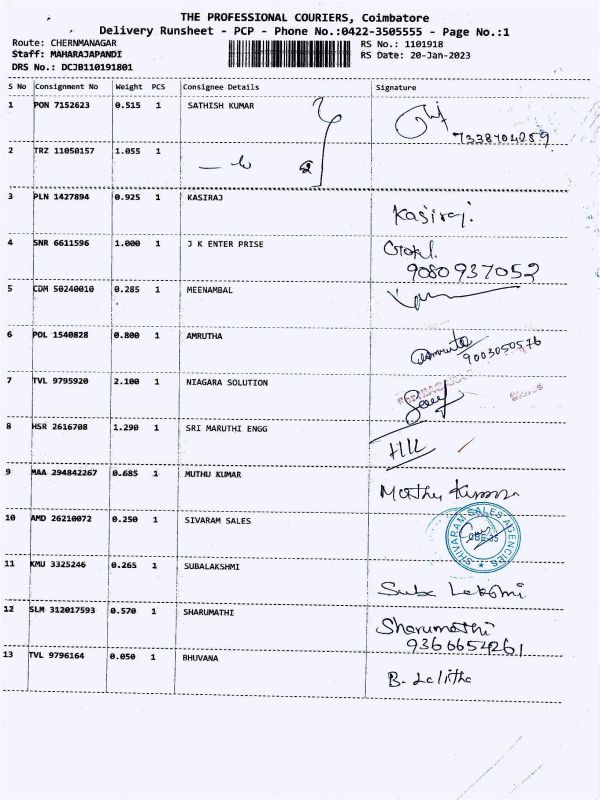 THE PROFESSIONAL COURIERS, Coimbatore
Delivery Runsheet - PCP - Phone No.:0422-3505555 - Page No.:1
Route: CHERNMANAGAR
RS No.: 1101918
Staff: MAHARAJAPANDI
RS Date: 20-Jan-2023
DRS No.: DCJB110191801
S No Consignment No Weight PCS Consignee Details Signature
1 PON 7152623 0.515 1 SATHISH KUMAR
7338704289
2 TRZ 11050157 1.055 1
3 PLN 1427894 0.925 1 KASIRAJ
Kasiraj.
4 SNR 6611596 1.000 1 J K ENTER PRISE
9080937052
5 CDM 50240010 0.285 1 MEENAMBAL
6 POL 1540828 0.800 1 AMRUTHA
9003050576
7 TVL 9795920 2.100 1 NIAGARA SOLUTION
8 HSR 2616708 1.290 1 SRI MARUTHI ENGG
9 MAA 294842267 0.685 1 MUTHU KUMAR
10 AMD 26210072 0.250 1 SIVARAM SALES
SHIVARAM SALES AGENCIES
CBE-35
11 KMU 3325246 0.265 1 SUBALAKSHMI
12 SLM 312017593 0.570 1 SHARUMATHI
Sharumathi
9366654261
13 TVL 9796164 0.050 1 BHUVANA
B. Lalitha